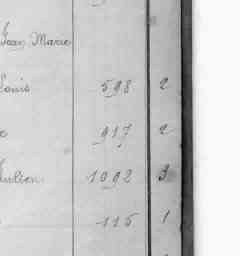 Jean Marie
Louis 598 2
e 917 2
Julien 1092 3
115 1